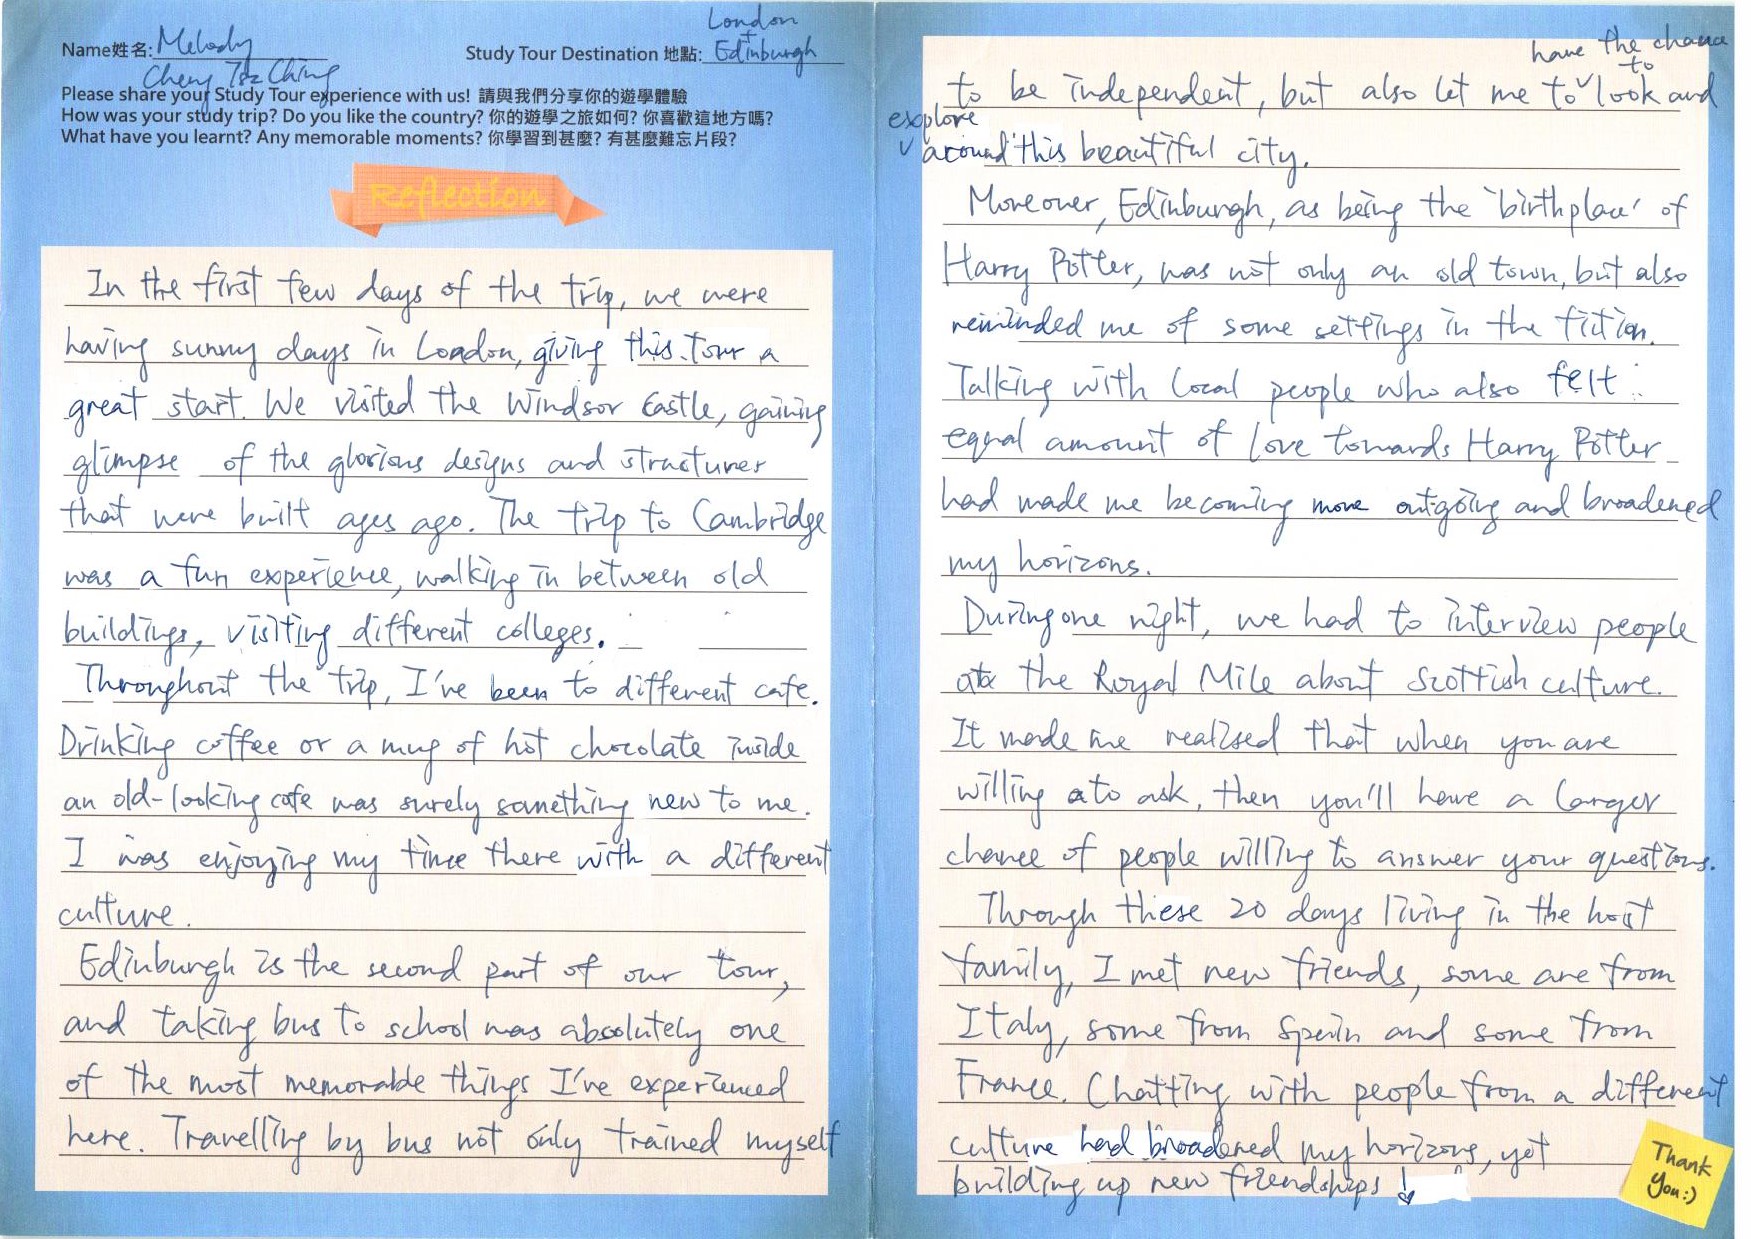 Name姓名: Melody
Cheng Tsz Ching
Study Tour Destination 地點: London
+
Edinburgh
Please share your Study Tour experience with us! 請與我們分享你的遊學體驗
How was your study trip? Do you like the country? 你的遊學之旅如何? 你喜歡這地方嗎?
What have you learnt? Any memorable moments? 你學習到甚麼? 有甚麼難忘片段?
Reflection
In the first few days of the trip, we were
having sunny days in London, giving this tour a
great start. We visited the Windsor Castle, gaining
glimpse of the glorious designs and structures
that were built ages ago. The trip to Cambridge
was a fun experience, walking in between old
buildings, visiting different colleges.
Throughout the trip, I've been to different cafe.
Drinking coffee or a mug of hot chocolate inside
an old-looking cafe was surely something new to me.
I was enjoying my time there with a different
culture.
Edinburgh is the second part of our tour,
and taking bus to school was absolutely one
of the most memorable things I've experienced
here. Travelling by bus not only trained myself
have the chance
to
to be independent, but also let me to look and
explore
around this beautiful city.
Moreover, Edinburgh, as being the 'birthplace' of
Harry Potter, was not only an old town, but also
reminded me of some settings in the fiction.
Talking with local people who also felt
equal amount of love towards Harry Potter
had made me becoming more outgoing and broadened
my horizons.
During one night, we had to interview people
at the Royal Mile about Scottish culture.
It made me realised that when you are
willing to ask, then you'll have a larger
chance of people willing to answer your questions.
Through these 20 days living in the host
family, I met new friends, some are from
Italy, some from Spain and some from
France. Chatting with people from a different
culture had broadened my horizons, yet
building up new friendships!
Thank
you:)